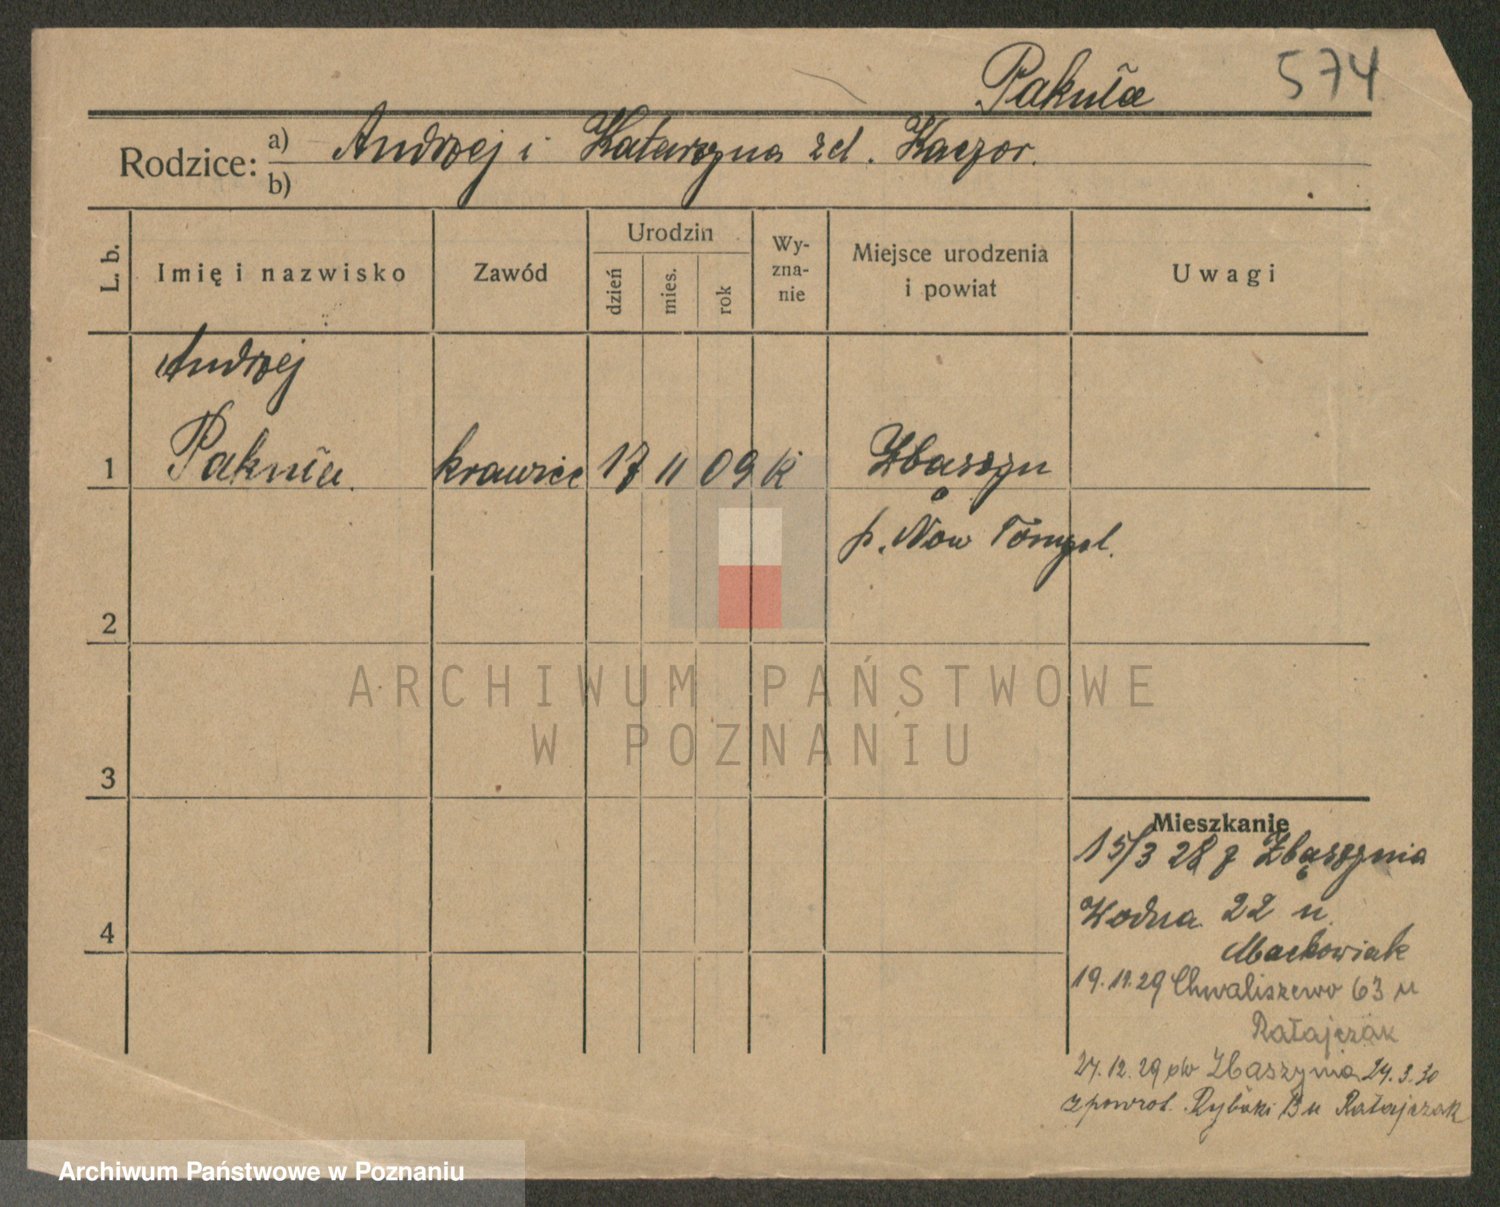 Pakuła 574
Rodzice: a) Andrzej i Katarzyna zd. Kaczor.
b)
L. b. Imię i nazwisko Zawód Urodzin dzień mies. rok Wyznanie Miejsce urodzenia i powiat Uwagi
Andrzej
1 Pakuła. krawiec 17 11 09 K Zbąszyn
p. Now Tomysl.
2
ARCHIWUM PAŃSTWOWE
W POZNANIU
3
Mieszkanie
15/3 28 z Zbąszynia
4 Wodna 22 u
Mackowiak
19.11.29 Chwaliszewo 63 u
Ratajczak
27.12.29 do Zbaszynia 24.3.30
z powrot. Rybaki u Ratajczak
Archiwum Państwowe w Poznaniu